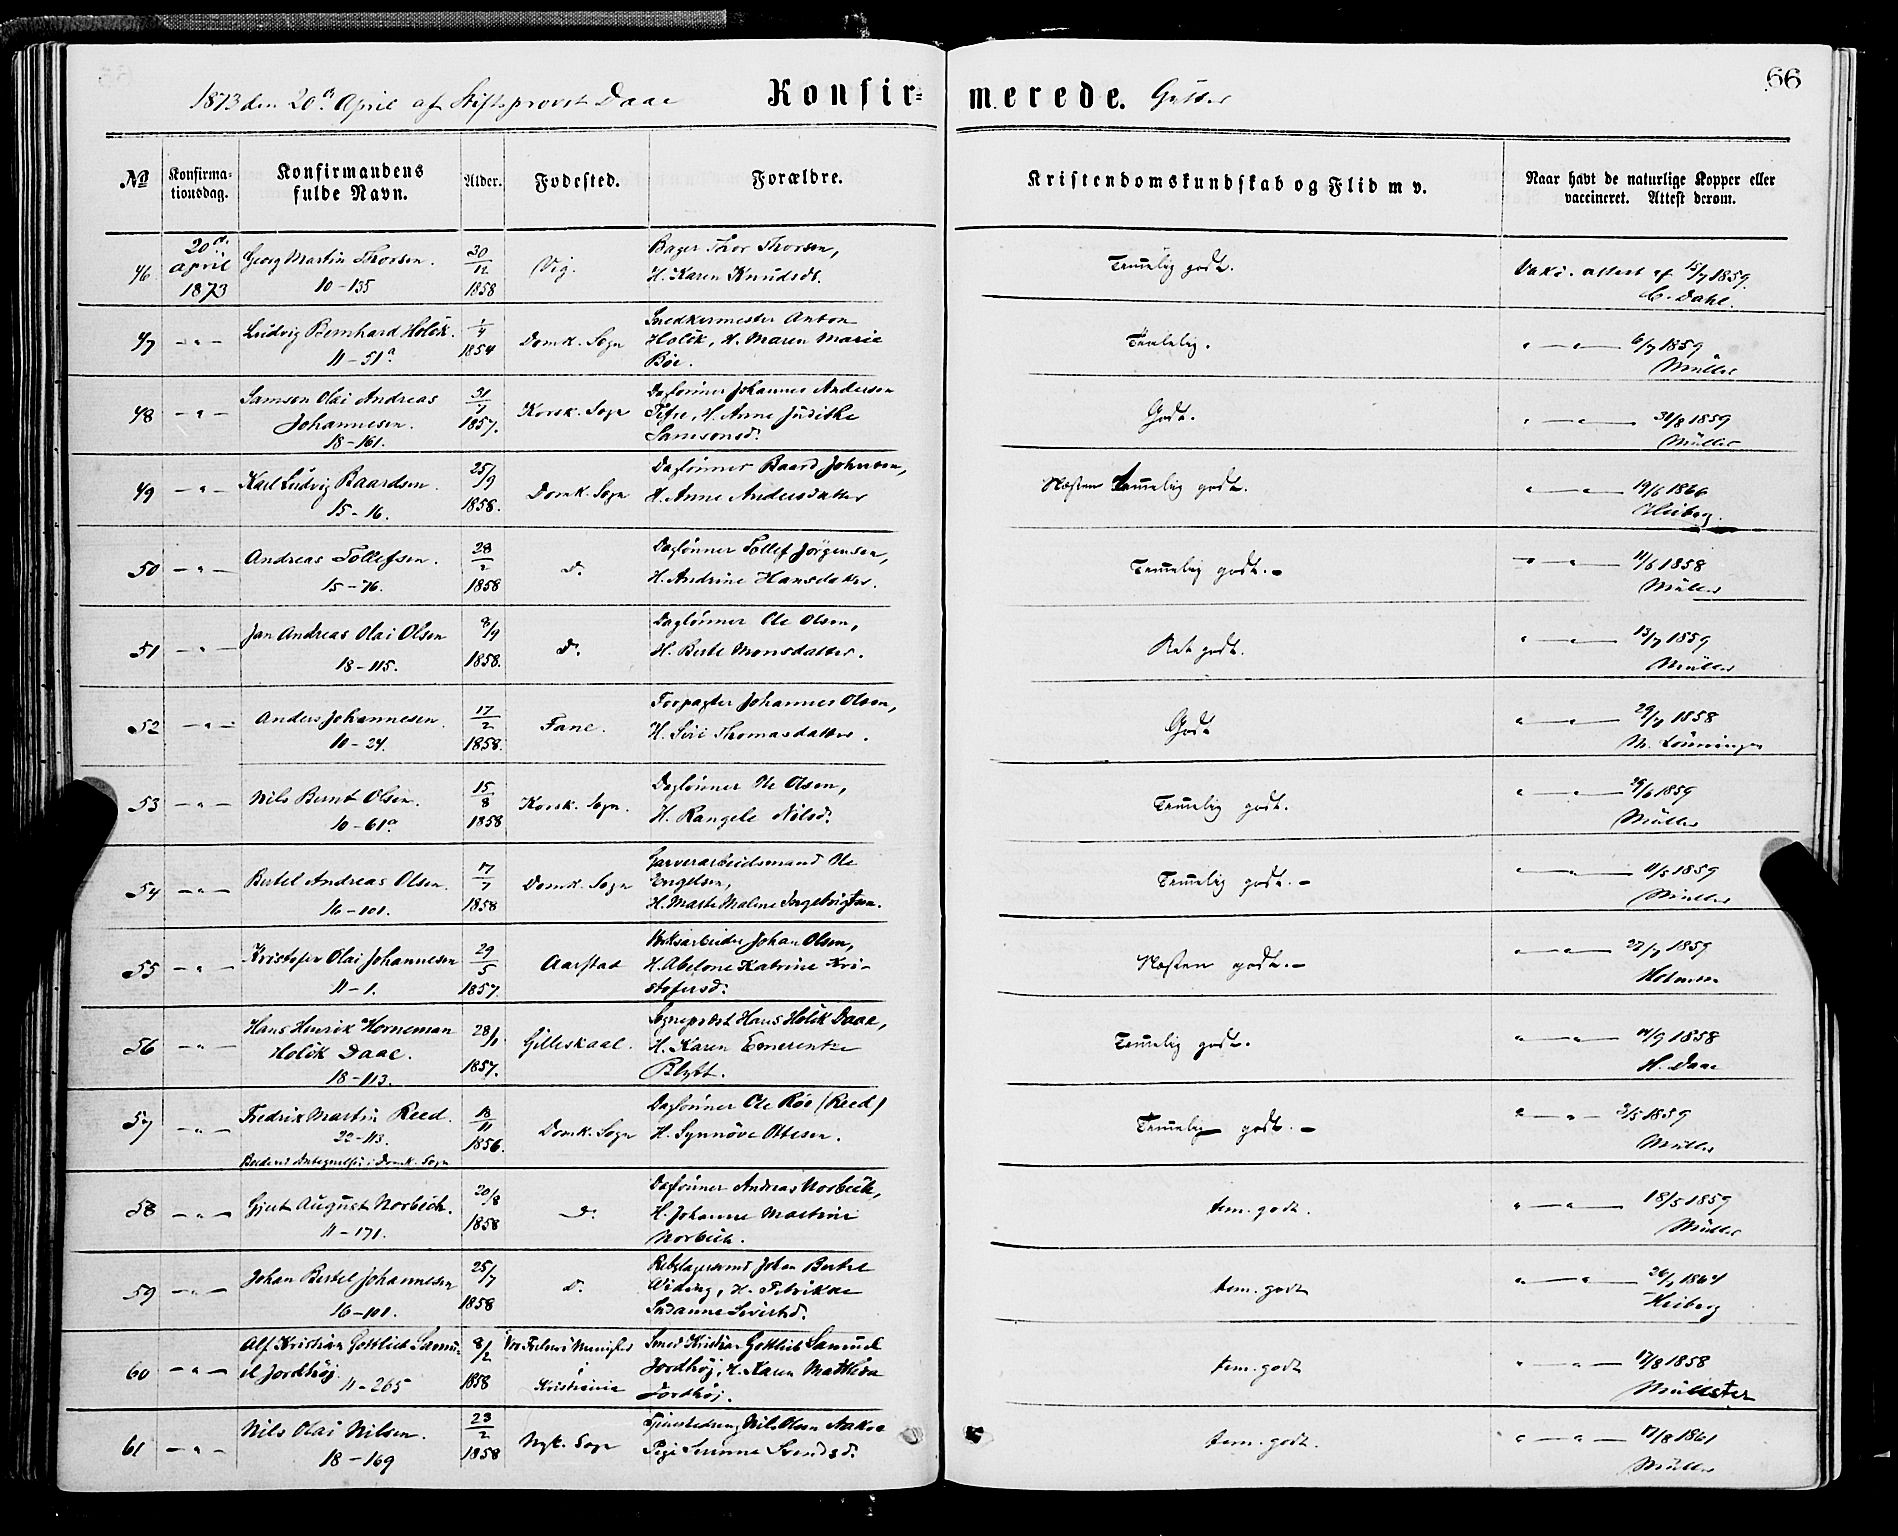 66
1873 den 20de April af Stiftsprovst Daae Konfirmerede. Gutter
No Konfirmationsdag. Konfirmandens fulde Navn. Alder. Fødested. Forældre. Kristendomskundskab og Flid m v. Naar havt de naturlige Kopper eller vaccineret. Attest derom.
46 20de April 1873 Georg Martin Thorsen. 10-135 30/12 1858 Vig. Bager Thor Thorsen, H. Karen Knudsdr. Temelig godt. Vakc. attest af 15/7 1859. C. Dahl.
47 - " - Ludvig Bernhard Holck. 11-51a 1/4 1854 Domk. Sogn Snedkermester Anton Holck, H. Maren Marie Bøe. Temelig. " - " - 6/7 1859 Müller
48 - " - Samson Olai Andreas Johannesen. 18-161. 31/7 1857. Korsk. Sogn Daglønner Johannes Andersen H. Anne Judithe Samsonsd. Godt. " - " - 31/8 1859 Müller
49 - " - Karl Ludvig Baardsen. 15-16. 25/9 1858. Domk. Sogn Daglønner Baard Johnsen, H. Anne Andersdatter Næsten Temelig godt. " - " - 19/6 1866 Heiberg.
50 - " - Andreas Tollefsen. 15-76. 28/2 1858 do. Daglønner Tollef Jørgensen, H. Andrine Hansdatter. Temelig godt. - " - " - 11/6 1858 Müller
51 - " - Jan Andreas Olai Olsen 18-115. 8/9 1858. do. Daglønner Ole Olsen, H. Berte Monsdatter. Ret godt. " - " - 13/7 1859 Müller
52 - " - Anders Johannesen. 10-24. 17/2 1858. Fane. Forpagter Johannes Olsen, H. Siri Thomasdatter. Godt " - " - 29/7 1858 M. Lønningen
53 - " - Nils Bernt Olsen. 10-61a 15/8 1858 Korsk. Sogn. Daglønner Ole Olsen, H. Rangele Nilsd. Temelig godt. " - " - 1859 Müller
54 - " - Bertel Andreas Olsen. 16-101. 17/7 1858 Domk. Sogn Garverarbeidsmand Ole Engelsen, H. Marte Malene Temelig godt. - " - " - 11/5 1859 Müller
55 - " - Kristofer Olai Johannesen 11-1. 29/5 1857. Aarstad Johan Olsen, H. Abelone Katrine Kristofersd. Næsten godt. - " - " - 27/7 1859
56 - " - Hans Henrik Horneman Holck Daae. 18-113. 28/1 1857. Gilleskaal. Sogneprest Hans Holck Daae, H. Karen Emerentze Blytt. Temelig godt. " - " - 14/9 1858 H. Daae
57 - " - Fredrik Martin Reed. 22-113. 18/11 1856. Domk. Sogn Daglønner Ole Röe (Reed) H. Synnöve Ottesen. Temelig godt. - " - " - 3/5 1859 Müller
58 - " - Gjert August Norbech. 11-171. 20/8 1858 do. Daglønner Andreas Norbech, H. Johanne Martine Norbech. tem. godt. " - " - 18/5 1859 Müller
59 - " - Johan Bertel Johannesen 16-101. 25/7 1858 do. Rebslagersvend Johan Bertel Widing, H. Petrikke Susanne Sivertsd. tem. godt " - " - 26/7 1864 Heiberg
60 - " - Alf Kristian Gottlieb Samuel Jordhøj. 11-265 8/2 1858 Vor Frelsers Menighed i Kristiania Smed Kristian Gottlieb Samuel Jordhøj, H. Karen Mathilda Jordhøj. tem. godt " - " - 17/8 1858
61 - " - Nils Olai Nilsen. 18-169 23/2 1858 Nyk. Sogn Tjenestedreng Nils Olsen Pige tem. godt. " - " - 17/8 1861 Müller